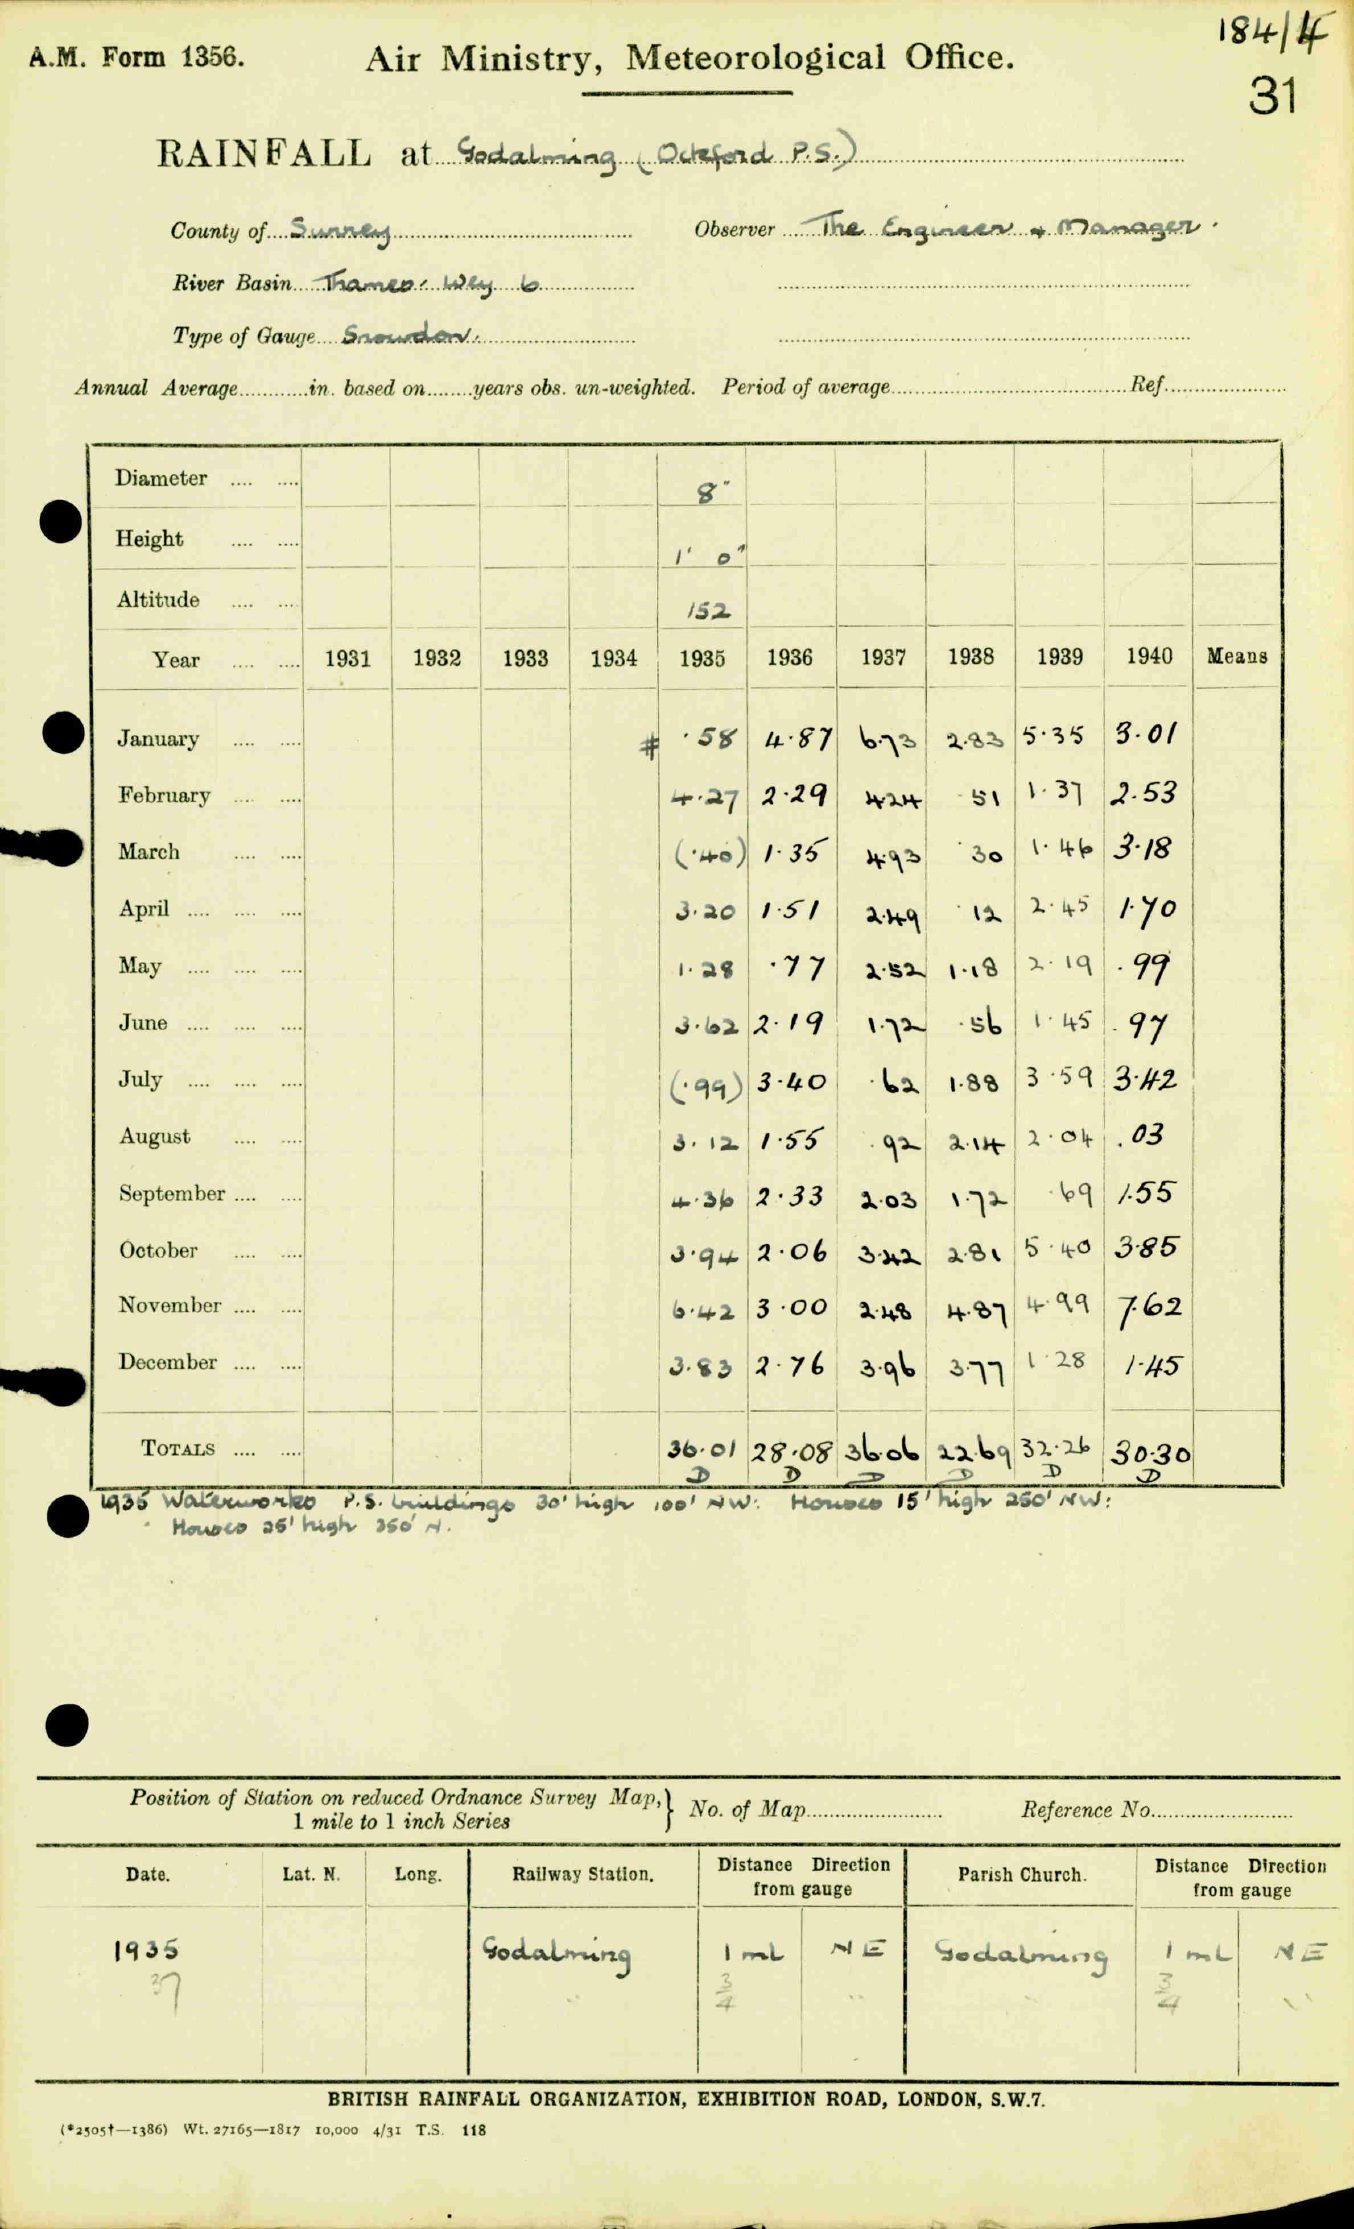 184/4
A.M. Form 1356. Air Ministry, Meteorological Office.
31
RAINFALL at Godalming (Ockford P.S.)
County of Surrey Observer The Engineer + Manager.
River Basin Thames. Wey 6
Type of Gauge Snowdon.
Annual Average............in. based on........years obs. un-weighted. Period of average........................Ref.....................
Diameter .... .... 8"
Height .... .... 1' 0"
Altitude .... .... 152
Year .... .... 1931 1932 1933 1934 1935 1936 1937 1938 1939 1940 Means
January .... .... # .58 4.87 6.73 2.83 5.35 3.01
February .... .... 4.27 2.29 4.24 .51 1.37 2.53
March .... .... (.40) 1.35 4.93 .30 1.46 3.18
April .... .... .... 3.20 1.51 2.49 .12 2.45 1.70
May .... .... .... 1.28 .77 2.52 1.18 2.19 .99
June .... .... .... 3.62 2.19 1.72 .56 1.45 .97
July .... .... .... (.99) 3.40 .62 1.88 3.59 3.42
August .... .... 3.12 1.55 .92 2.14 2.04 .03
September .... .... 4.36 2.33 2.03 1.72 .69 1.55
October .... .... 3.94 2.06 3.42 2.81 5.40 3.85
November .... .... 6.42 3.00 2.48 4.87 4.99 7.62
December .... .... 3.83 2.76 3.96 3.77 1.28 1.45
TOTALS .... .... 36.01 28.08 36.06 22.69 32.26 30.30
D D D D D D
1935 Waterworks P.S. buildings 30' high 100' NW: Houses 15' high 250' NW:
Houses 25' high 350' N.
Position of Station on reduced Ordnance Survey Map, } No. of Map........................ Reference No.........................
1 mile to 1 inch Series
Date. Lat. N. Long. Railway Station. Distance Direction Parish Church. Distance Direction
from gauge from gauge
1935 Godalming 1 ml NE Godalming 1 ml NE
37 " 3/4 " " 3/4 "
BRITISH RAINFALL ORGANIZATION, EXHIBITION ROAD, LONDON, S.W.7.
(*2505†—1386) Wt. 27165—1817 10,000 4/31 T.S. 118